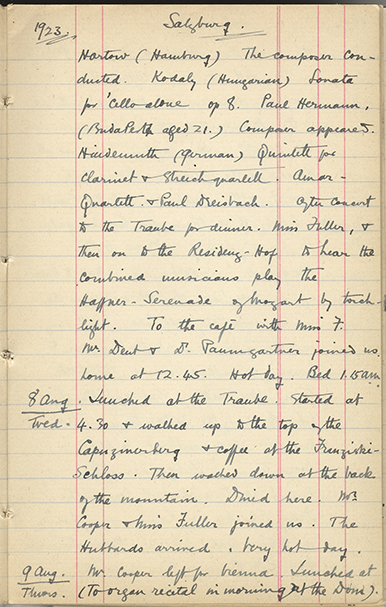 1923. Salzburg.
Hartow (Hamburg) The composer con-
ducted. Kodaly (Hungarian) Sonata
for 'Cello alone op 8. Paul Hermann,
(BudaPesth aged 21.) Composer appeared.
Hindemith (German) Quintett for
Clarinet & Streichquartett. Amar-
Quartett. & Paul Dreisbach. After concert
to the Traube for dinner. Miss Fuller, &
then on to the Residenz-Hof to hear the
combined musicians play the
Haffner-Serenade of Mozart by torch-
light. To the café with Miss F.
Mr. Dent & D. Paumgartner joined us.
home at 12.45. Hot day. Bed 1.15am
8 Aug. Lunched at the Traube. Started at
Wed. 4.30 & walked up to the top of the
Capuzinerberg & coffee at the Franziski-
Schloss. Then walked down at the back
of the mountain. Dined here. Mr.
Cooper & Miss Fuller joined us. The
Hubbards arrived. Very hot day.
9 Aug. Mr. Cooper left for Vienna. Lunched at
Thurs. (To organ recital in morning at the Dom).